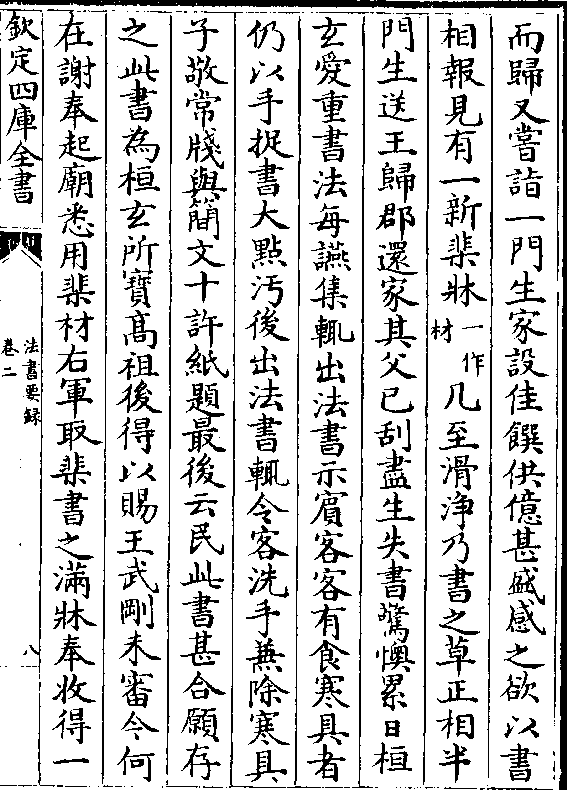 而歸又嘗詣一門生家設佳饌供億甚盛感之欲以書
相報見有一新棐牀一作材几至滑浄乃書之草正相半
門生送王歸郡還家其父已刮盡生失書驚懊累日桓
玄愛重書法每讌集輒出法書示賔客客有食寒具者
仍以手捉書大點汚後出法書輒令客洗手兼除寒具
子敬常牋與簡文十許紙題最後云民此書甚合願存
之此書為桓玄所寶髙祖後得以賜王武剛未審今何
在謝奉起廟悉用棐材右軍取棐書之滿牀奉收得一
欽定四庫全書
法書要録
卷二
八